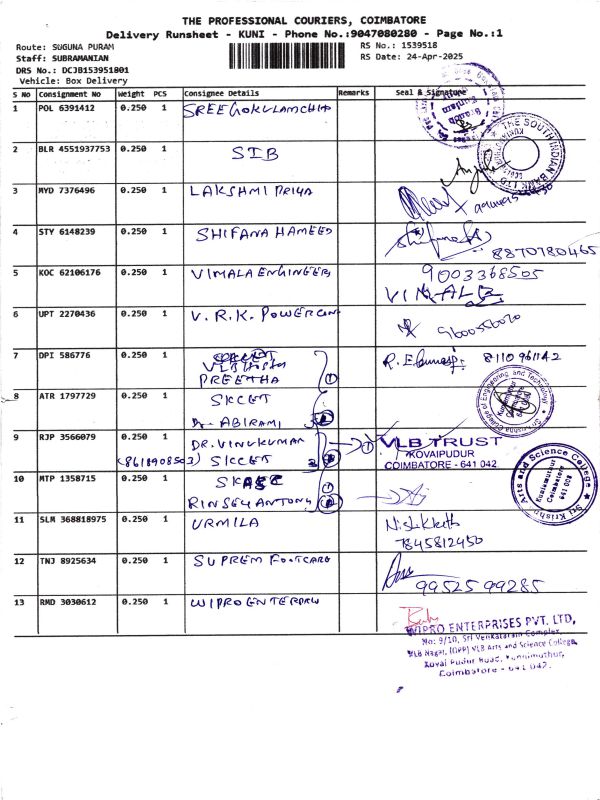 THE PROFESSIONAL COURIERS, COIMBATORE
Delivery Runsheet - KUNI - Phone No.:9047080280 - Page No.:1
Route: SUGUNA PURAM
RS No.: 1539518
Staff: SUBRAMANIAN
RS Date: 24-Apr-2025
DRS No.: DCJB153951801
Vehicle: Box Delivery
S No Consignment No Weight PCS Consignee Details Remarks Seal & Signature
1 POL 6391412 0.250 1 SREE GOKULAM CHIT
2 BLR 4551937753 0.250 1 SIB
THE SOUTH INDIAN BANK LTD
3 MYD 7376496 0.250 1 LAKSHMI PRIYA
4 STY 6148239 0.250 1 SHIFANA HAMEED
8870780465
5 KOC 62106176 0.250 1 VIMALA ENGINEER
9003368505
VIMALA
6 UPT 2270436 0.250 1 V. R. K. POWERCON
7 DPI 586776 0.250 1
PREETHA
8110961142
8 ATR 1797729 0.250 1 SKCET
Dr. ABIRAMI
Sri Krishna College of Engineering and Technology
9 RJP 3566079 0.250 1 DR. VINUKUMAR
SKCET
VLB TRUST
KOVAIPUDUR
COIMBATORE - 641 042
10 MTP 1358715 0.250 1
RINSEY ANTONY
Sri Krishna Arts and Science College
Kuniamuthur
Coimbatore
641 008
11 SLM 368818975 0.250 1 URMILA
7845812450
12 TNJ 8925634 0.250 1 SUPREM FOOTCARE
99525 99285
13 RMD 3030612 0.250 1 WIPRO ENTERPRI
WIPRO ENTERPRISES PVT. LTD,
No: 9/10, Sri Venkataram Complex,
VLB Nagar, (OPP) VLB Arts and Science College,
Kovai Pudur Road, Kuniamuthur,
Coimbatore - 641 042.